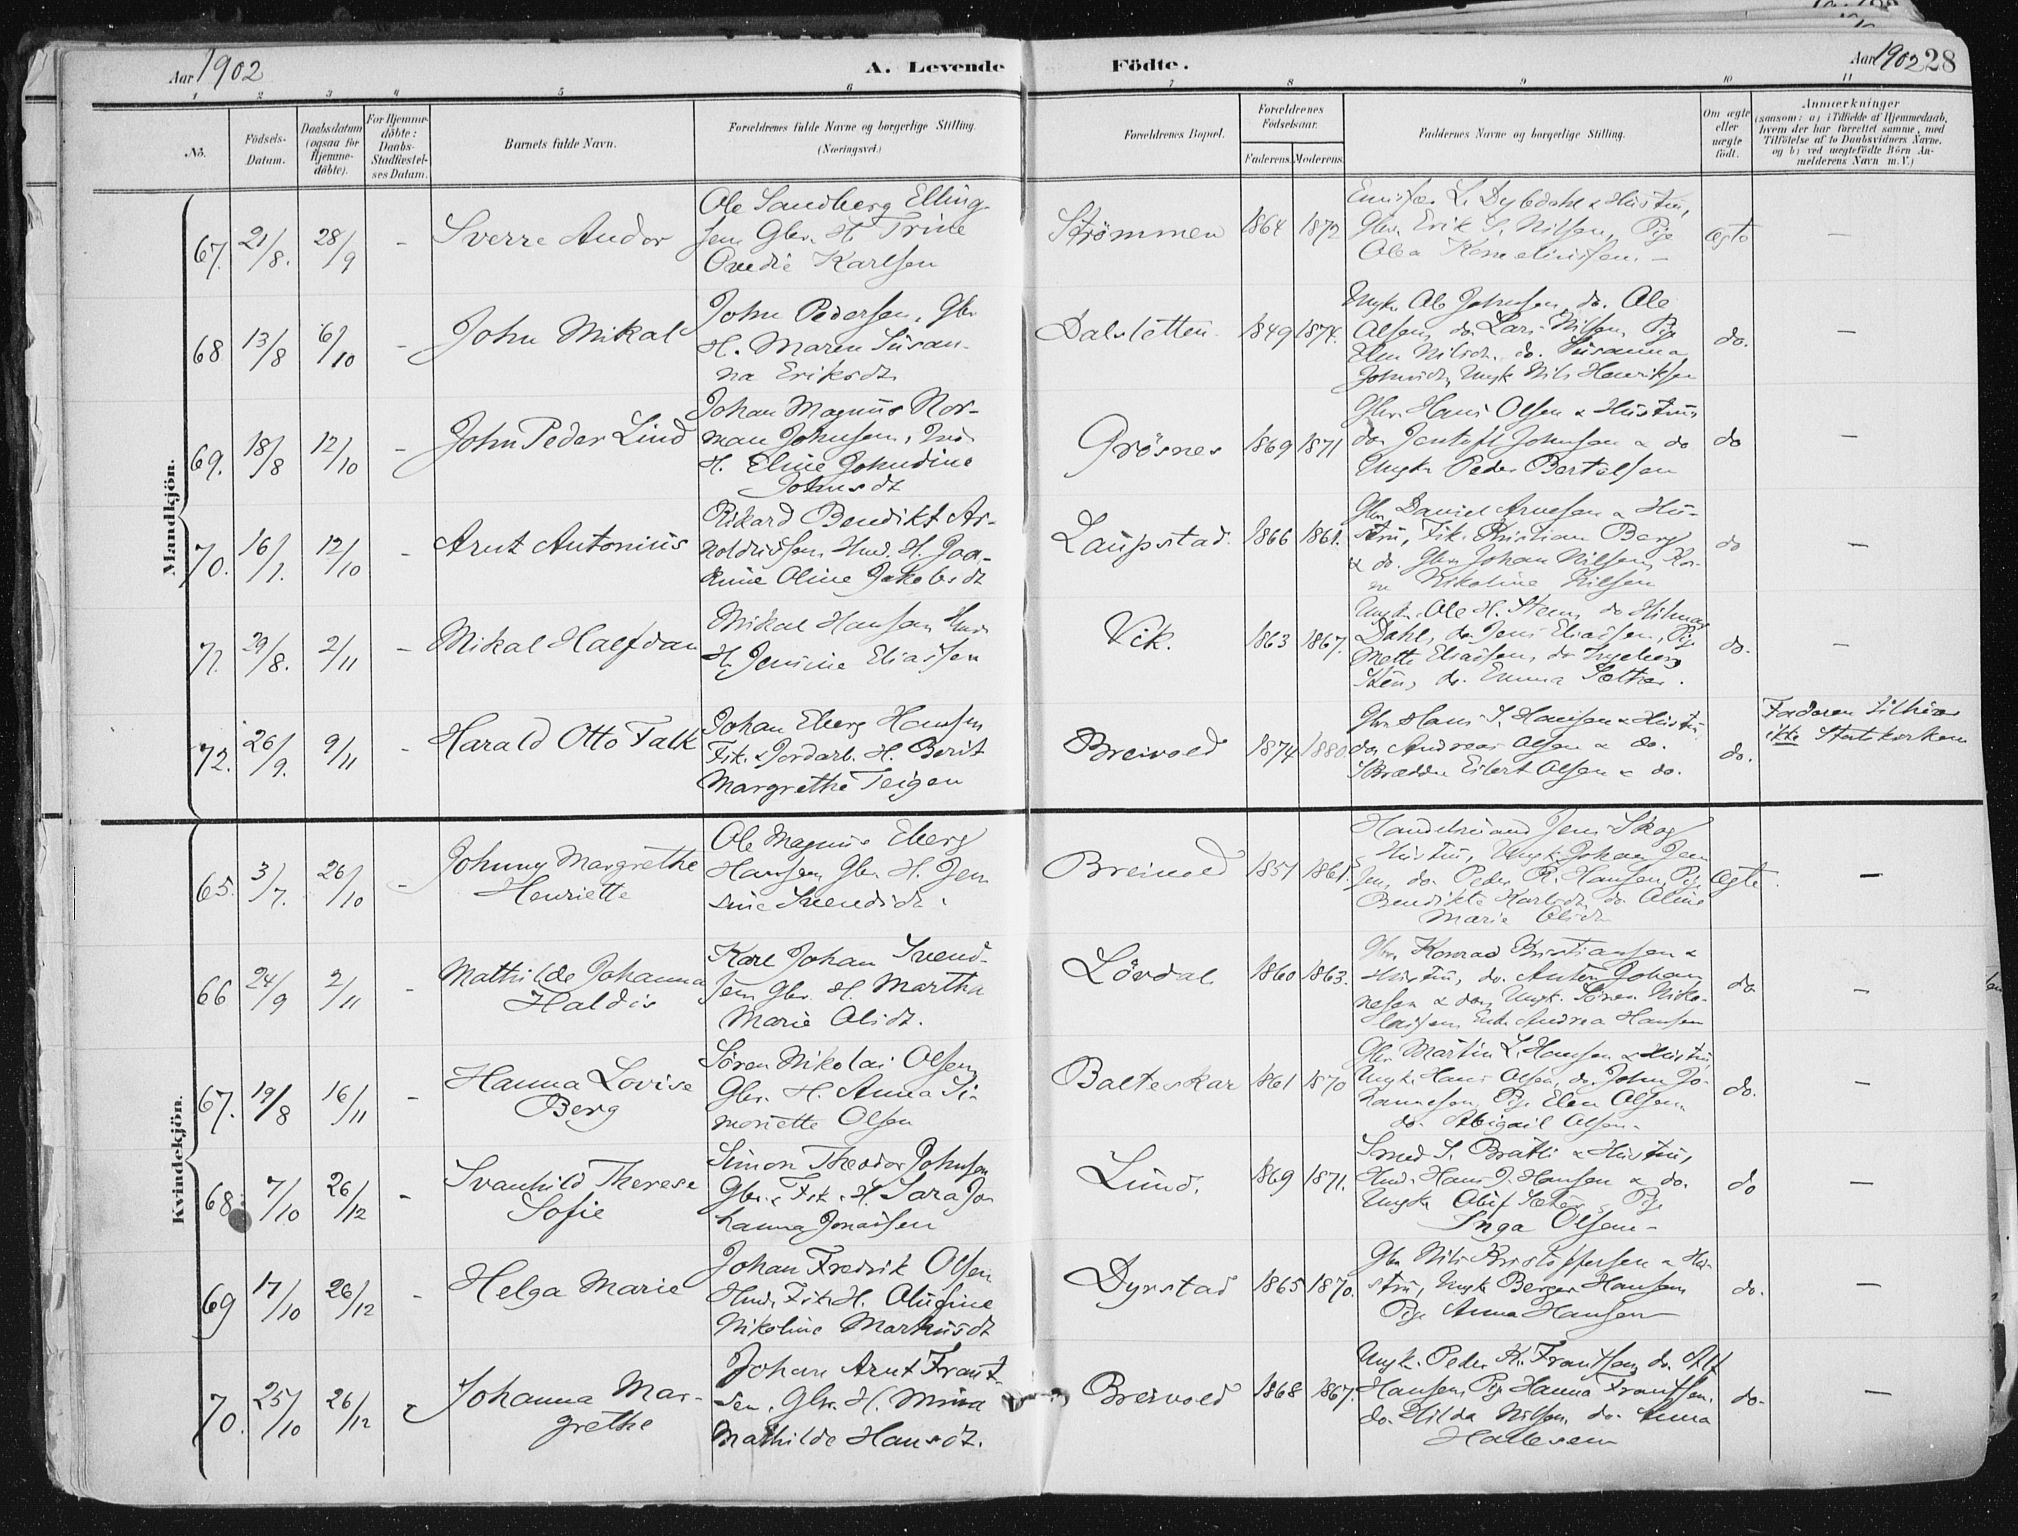 Aar 1902
A. Levende
Födte.
Aar 1902 28
1 2 3 4 5 6 7 8 9 10 11
No.
Födsels-
Datum.
Daabsdatum
(ogsaa for
Hjemme-
döbte).
For Hjemme-
döbte:
Daabs-
Stadfæstel-
ses Datum.
Barnets fulde Navn.
Forældrenes fulde Navne og borgerlige Stilling.
(Næringsvei.)
Forældrenes Bopæl.
Forældrenes
Födselsaar.
Faderens. Moderens.
Faddernes Navne og borgerlige Stilling.
Om ægte
eller
uægte
födt.
Anmærkninger
(saasom: a) i Tilfælde af Hjemmedaab,
hvem der har forrettet samme, med
Tilföielse af to Daabsvidners Navne.
og b) ved uægtefödte Börn An-
melderens Navn m. V.)
Mandkjön.
67. 21/8. 28/9 - Sverre Andor
Ole Sandberg Elling-
sen Gbr. H. Trine
Ovedie Karlsen
Strömmen 1864 1872
L. Dybdahl & Hustru,
Gbr. Erik S. Nilsen, Pige
Olea
ægte -
68 13/8 6/10 - John Mikal
John Pedersen, Gbr
H. Maren Susan-
na Eriksdt.
Dalsletten 1849 1874.
Ungk. Ole Johnsen, do. Ole
Olsen, do. Lars Nilsen, Pige
Elen Nilsdt. do. Susanna
Johnsdt, Ungk Nils Henriksen
do. -
69. 18/8 12/10 - John Peder Lind
Johan Magnus Nor-
man Johnsen, Ind.
H. Eline Johndine
Johnsdt
Grösnes 1869 1871
Gbr. Hans Olsen & Hustru
do. Jentoft Johnsen & do
Ungk. Peder Bertelsen
do -
70. 16/1. 12/10 - Arnt Antonius
Rikard Benedikt Ar-
noldussen, Hmd. H. Joa-
kine Oline Jakobsdt
Laupstad. 1866 1861.
Gbr. Daniel Arnesen & Hu-
stru, Fisk. Kristian Berg
& do. Gbr. Johan Nilsen, Ko-
ne Nikoline Nilsen
do -
71. 29/8. 2/11 - Mikal Halfdan
Mikal Hansen Hmd.
H. Jensine Eliassen
Vik. 1863 1867.
Ungk. Ole H. Steen, do Hilmar
Dahl, do. Jens Eliassen, Pige
Mette Eliassen, do Ingeborg
Steen, do. Emma Sæther.
do. -
72. 26/9. 9/11 - Harald Otto Falk
Johan Eberg Hansen
Fisk. & Jordarb. H. Berit
Margrethe Teigen
Breivold 1874 1880.
Gbr. Hans S. Hansen & Hustru
do. Andreas Olsen & do.
Skrædder Eilert Olsen & do.
do.
Faderen tilhörer
ikke Statskirken
Kvindekjön.
65. 3/7. 26/10 - Johnny Margrethe
Henriette
Ole Magnus Eberg
Hansen, Gbr. H. Jen-
sine Svendsdt.
Breivold 1857 1861.
Handelsmand Jens Skog
Hustru, Ungk. Johan Jen-
sen, do. Peder R. Hansen, Pige
Benedikte Karlsdt, do Oline
Marie Olsdt.
ægte. -
66 24/9 2/11 - Mathilde Johanna
Haldis
Karl Johan Svend-
sen, Gbr. H. Martha
Marie Olsdt.
Lövdal 1860 1863.
Gbr. Konrad Kristiansen &
Hustru, do. Anton Johan-
nesen & do, Ungk. Sören Niko-
laisen, Enke Andrea Hansen
do -
67. 19/8 16/11 - Hanna Lovise
Berg
Sören Nikolai Olsen,
Gbr. H. Anna Si-
moriette Olsen
Balteskar 1861 1870
Gbr. Martin L. Hansen & Hustru,
Ungk. Hans Olsen, do. John Jo-
hannesen, Pige Elen Olsen.
do. Abigail Olsen.
do. -
68. 7/10 26/12 - Svanhild Therese
Sofie
Simon Theodor Johnsen
Gbr. & Fisk. H. Sara Jo-
hanna Jonassen
Lund. 1869 1871.
Smed S. Bratli & Hustru,
Hmd. Hans J. Hansen & do.
Ungk Oluf Sæter, Pige
Inga Olsen -
do -
69 17/10 26/12 - Helga Marie
Johan Fredrik Olsen
Hmd. Fisk. H. Alufine
Nikoline Markusdt
Dyrstad 1865 1870.
Gbr Nils Kristoffersen & Hu-
stru, Ungk Berger Hansen
Pige Anna Hansen
do. -
70. 25/10 26/12 - Johanna Mar-
grethe
Johan Arnt Frant-
sen, Gbr. H. Mina
Mathilde Hansdt.
Breivold 1868 1867.
Ungk. Peder K. Frantsen, do. Alf
Hansen, Pige Hanna Frantsen,
do. Hilda Nilsen, do. Anna
Hallesen
do. -